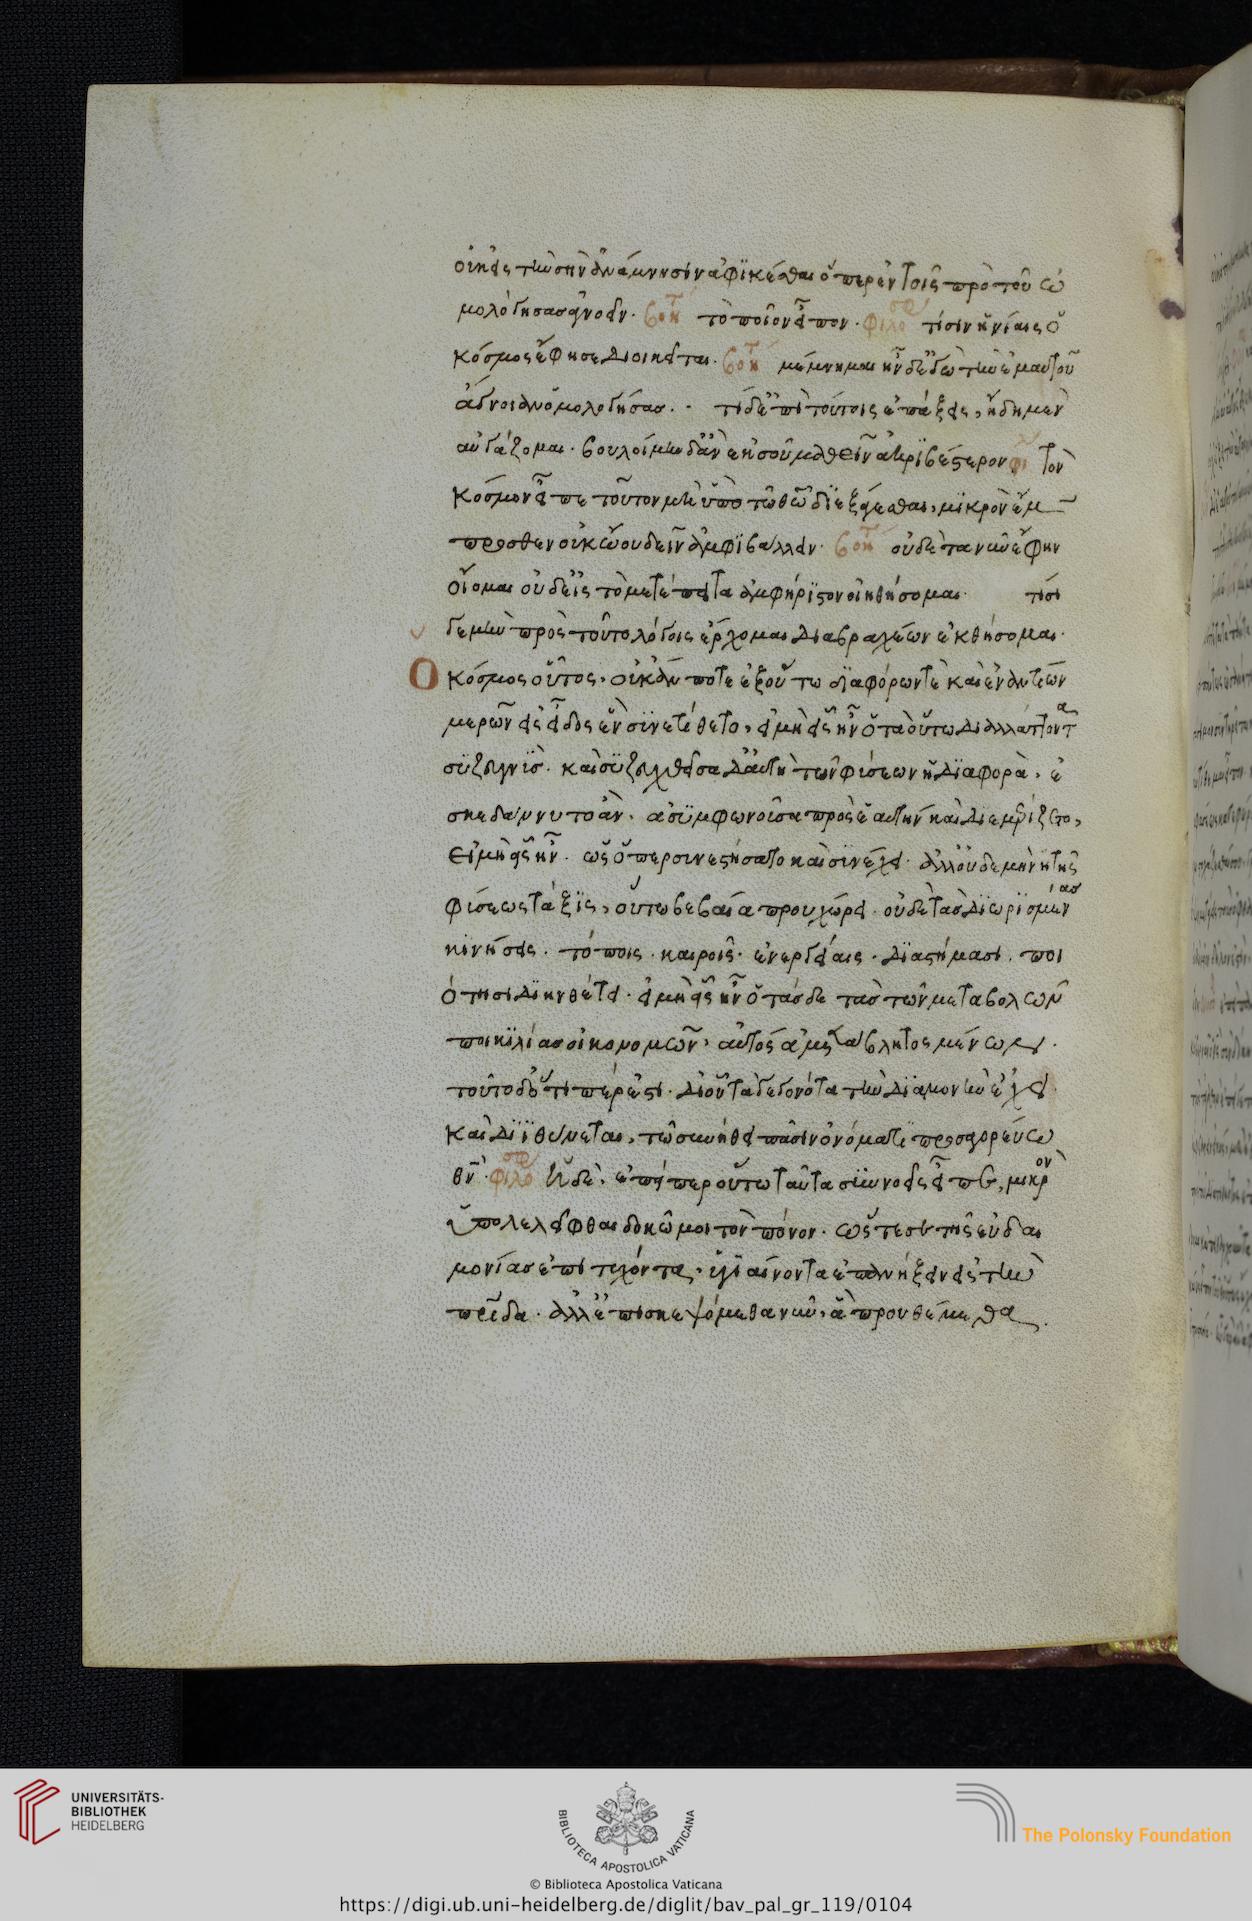 οἰκεῖς τὴν σὴν ἀνάμνησιν ἀφϊκέσθαι ὅπερ ἐν τοῖς πρὸ τοῦ ὡ
μολόγησας ἀγνοεῖν. βοη τ τὸ ποῖον εἶπον. φιλο σφ τίσιν ἡνίαις ὁ
κόσμος ἔφησε διοικεῖται. βοη τ μέμνημαι ἦν δ' ἐγὼ τὴν ἐμαυτοῦ
ἄγνοιαν ὁμολογήσας. τί δ' ἐπὶ τούτοις ἐπάξεις, ἤδη μὲν
αὐγάζομαι. βουλοίμην δ' ἂν ἐκ σοῦ μαθεῖν ἀκριβέστερον φι τὸν
κόσμον εἶπε τοῦτον μὴν ὑπὸ τῶ θεῶ διεξάγεσθαι, μικρὸν ἔμ
προσθεν οὐκ ὤου δεῖν ἀμφϊβάλλειν. βοη τ οὐδὲ τανῦν ἔφην
οἴομαι οὐδ' εἰς τὸ μετέπειτα ἀμφήριστον οἰηθήσομαι. τίσι
δὲ μὴν πρὸς τοῦτο λόγοις ἔρχομαι διαβραχέων ἐκθήσομαι.
Ὁ κόσμος οὗτος, οὐκ ἄν ποτε ἐξ οὕτω διαφόρων τὲ καὶ ἐναντίων
μερῶν εἰς εἶδος ἓν συνετέθετο, εἰ μὴ εἷς ἦν ὁ τὰ οὕτω διαλλάττοντα
συζευγνύς. καὶ συζευχθεῖσα δ' αὐτὴ τῶν φύσεων ἡ διαφορὰ, ἐ
σκεδάννυτο ἂν. ἀσύμφωνοῦσα πρὸς ἑαυτὴν καὶ διεμερίζετο,
εἰ μὴ εἷς ἦν. ὡς ὅπερ συνεστήσατο καὶ συνέχει. ἀλλ' οὐδὲ μὴν ἡ τῆς
φύσεως τάξις, οὕτω βεβαία προυχώρει. οὐδὲ τὰς διωρισμένας
κινήσεις. τόποις. καιροῖς. ἐνεργείαις. διαστήμασι. ποι
ότησι διηνθέτει. εἰ μὴ εἷς ἦν ὁ τάσδε τὰς τῶν μεταβολῶν
ποικιλίας οἰκονομῶν, αὐτὸς ἀμετάβλητος μένων.
τοῦτο δ' ὅτιπέρ ἐστι. δι' οὗ τὰ γεγονότα τὴν διαμονὴν ἔχει.
καὶ διϊθύνεται, τῶ συνήθει πᾶσιν ὀνόματι προσαγορεύω
θν. φιλο σφ ἡ δὲ, ἐπείπερ οὕτω ταῦτα συννοεῖς εἶπε, μικρὸν
ὑπολελεῖφθαι δοκῶ μοι τὸν πόνον. ὥς τε σὲ τῆς εὐδαι
μονίας ἐπιτυχόντα, ὑγιαίνοντα ἐπανήξειν εἰς τὴν
πρίδα. ἀλλ' ἐπισκεψόμεθα νῦν, ἃ προυθέμεθα.
UNIVERSITÄTS-
BIBLIOTHEK
HEIDELBERG
BIBLIOTECA APOSTOLICA VATICANA
The Polonsky Foundation
© Biblioteca Apostolica Vaticana
https://digi.ub.uni-heidelberg.de/diglit/bav_pal_gr_119/0104